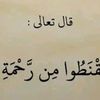 قال تعالى :
قْنَطُوا مِن رَّحْمَةِ